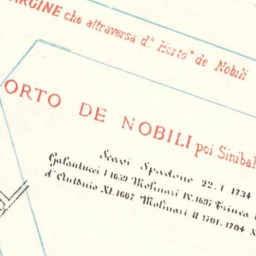 ARGINE che attraversa d.º Horto.º de Nobili
ORTO DE NOBILI poi Sinibal
Scavi Spadone 22.1.1734
Galantucci I 1659 Molinari IV. 1697 Trinca
d'Antonio XI. 1667 Molinari II 1701. 1704 X